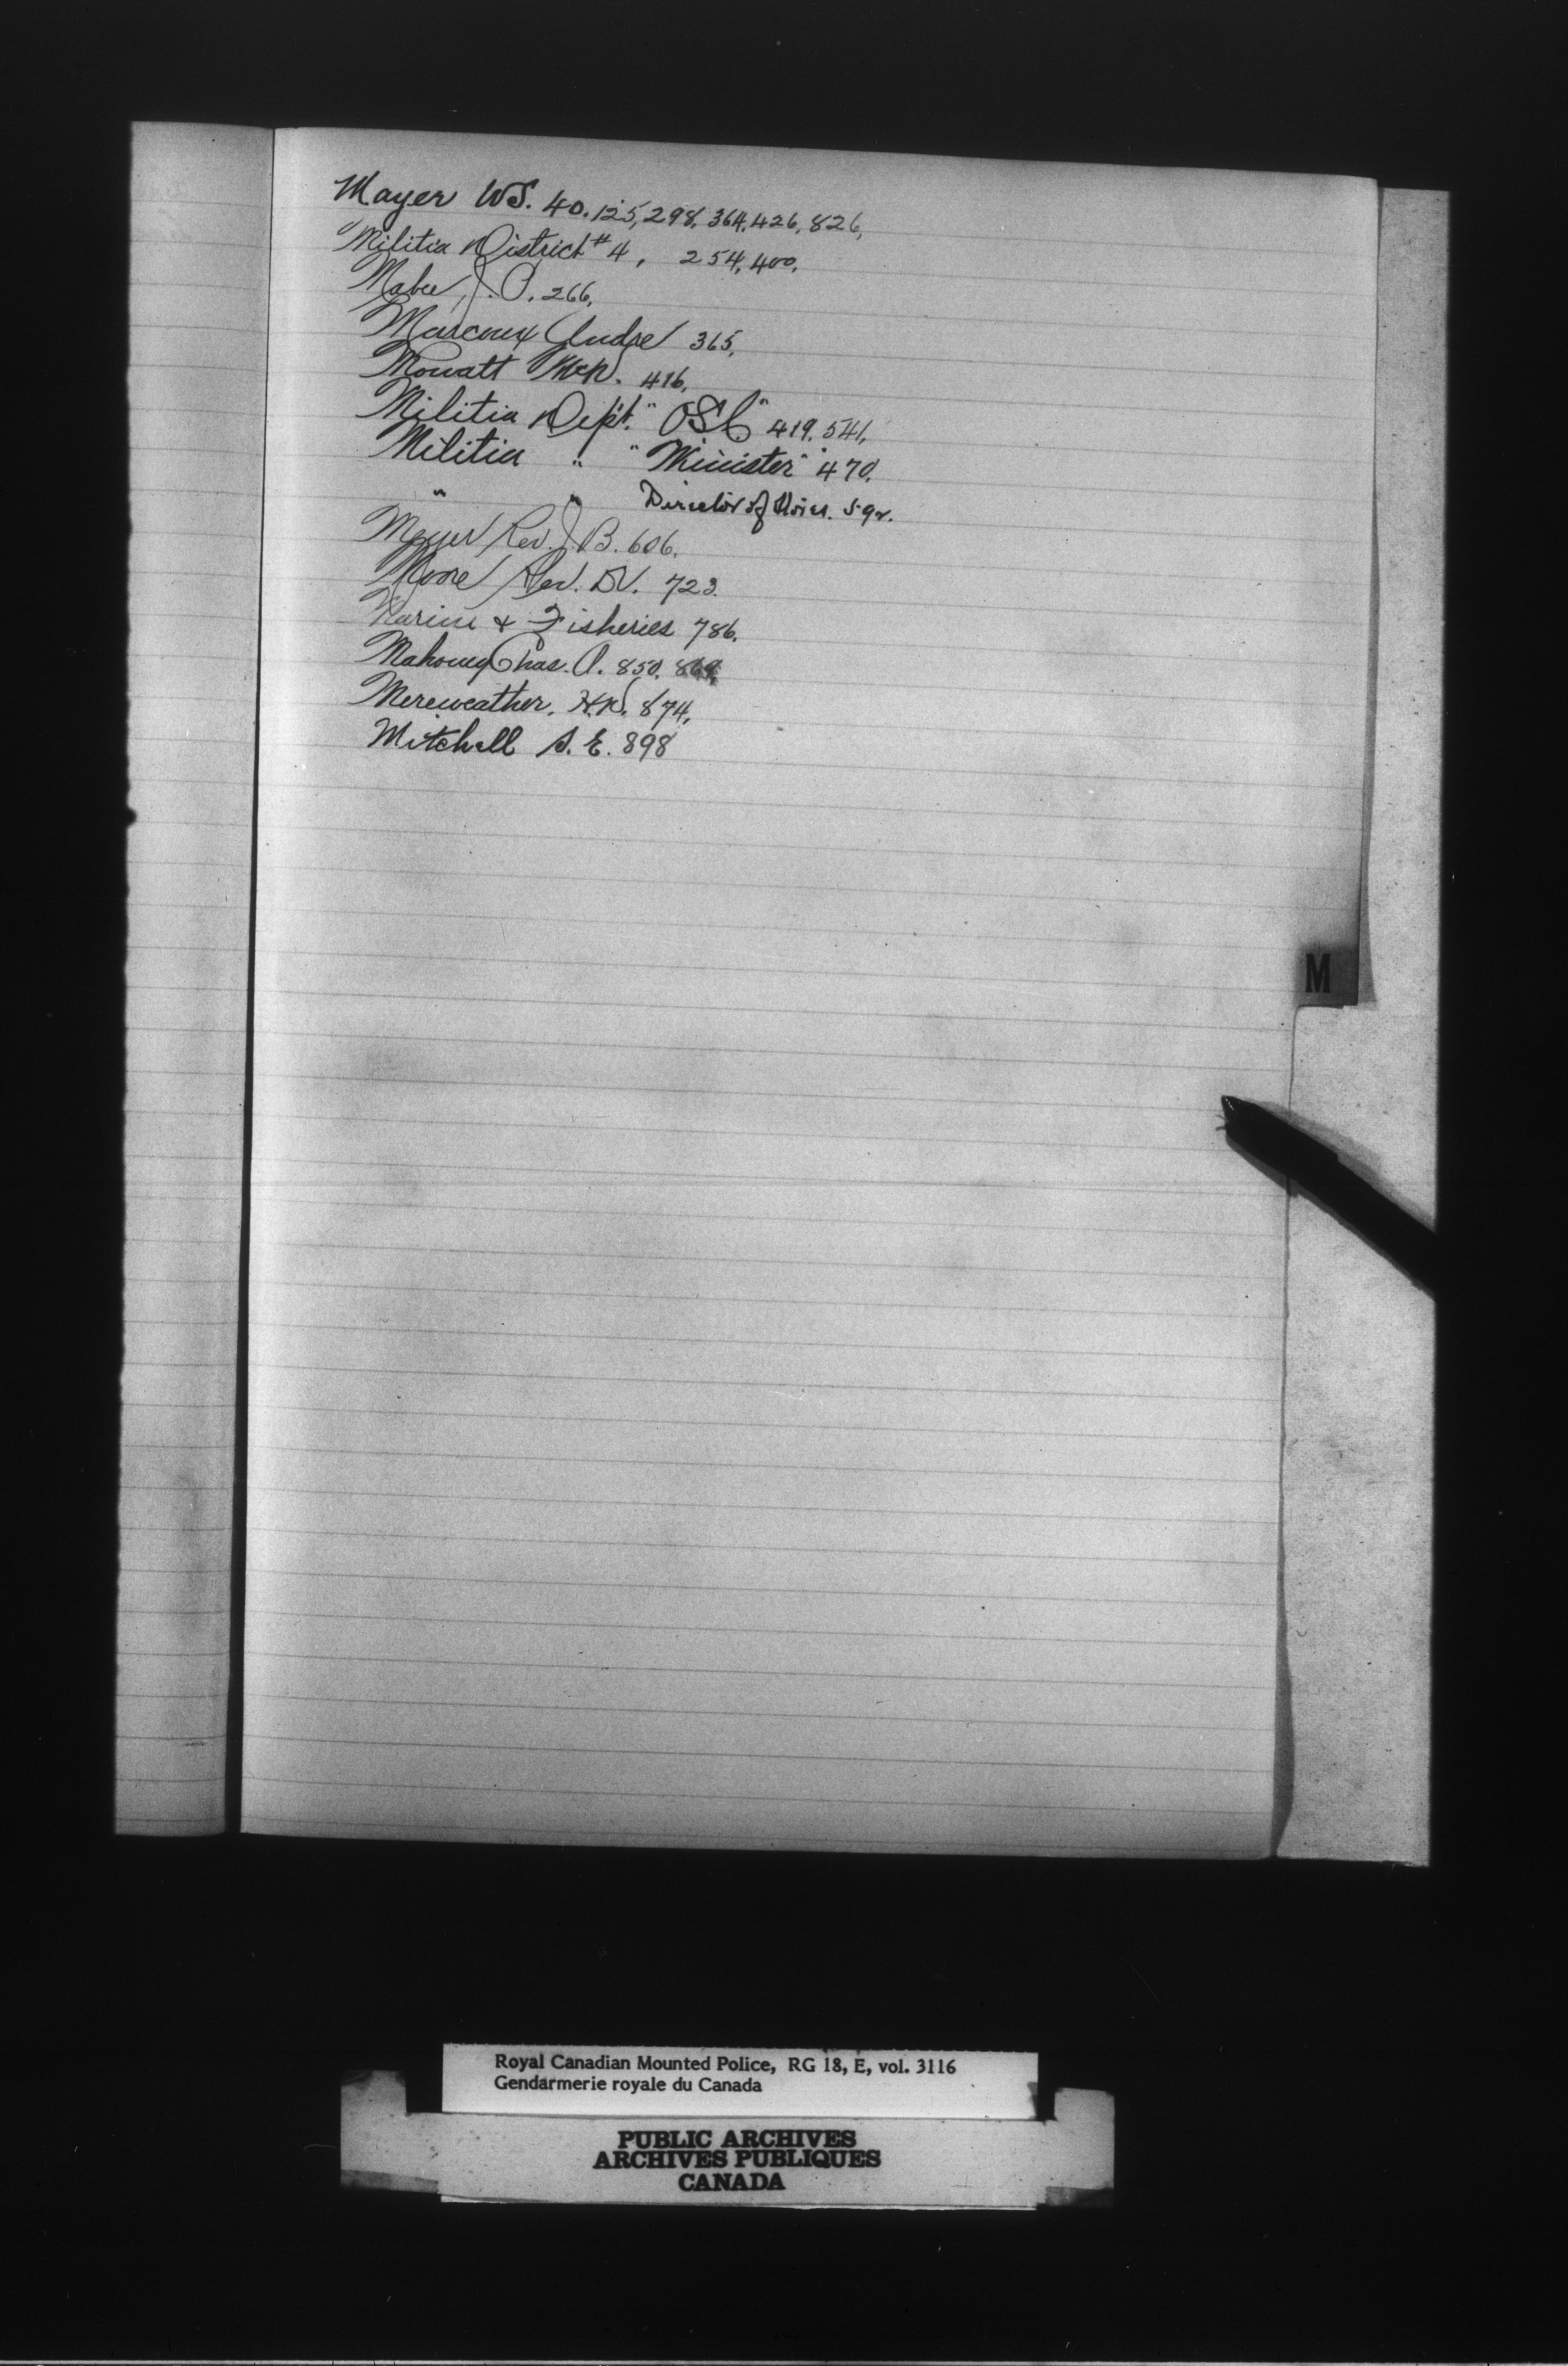 Mayer WS. 40. 125, 298, 364, 426, 826,
Militia District #4, 254, 400,
Mabee, J.P. 266,
Marcoux Judge 365,
Mowatt 416,
Militia Dept. "OSC" 419, 541,
Militia " "Minister" 470,
" " Director of 592.
Meyer Rev. J.B. 606.
Moore Rev. DV. 723.
Marine & Fisheries 786.
Mahoney Chas. A. 850, 869,
Mereweather, H.K. 874,
Mitchell S. E. 898
M
Royal Canadian Mounted Police, RG 18, E, vol. 3116
Gendarmerie royale du Canada
PUBLIC ARCHIVES
ARCHIVES PUBLIQUES
CANADA